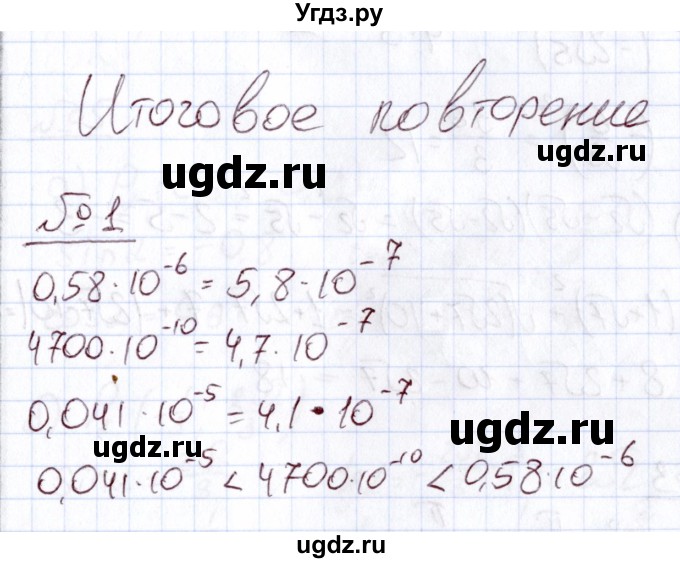 Угдз.ру
Итоговое повторение
ugdz.ru
ugdz.ru
№ 1
0,58·10⁻⁶ = 5,8·10⁻⁷
4700·10⁻¹⁰ = 4,7·10⁻⁷
0,041·10⁻⁵ = 4,1·10⁻⁷
ugdz.ru
ugdz.ru
0,041·10⁻⁵ < 4700·10⁻¹⁰ < 0,58·10⁻⁶
ugdz.ru